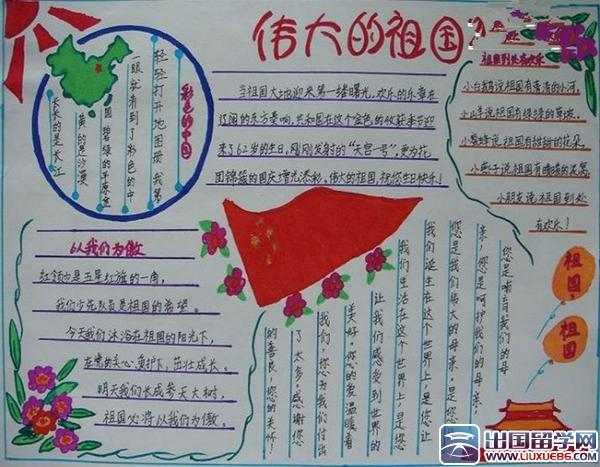 伟大的祖国
彩色的中国
轻轻打开地图册,我第
一眼就看到了彩色的中
国。碧绿的是平原,金
黄的是沙漠,
长长的是长江
当祖国大地迎来第一缕曙光,欢乐的乐章在
辽阔的东方奏响,共和国在这个金色的收获季节迎
来了62岁的生日,刚刚发射的“天宫一号”,更为花
团锦簇的国庆增光添彩。伟大的祖国,祝您生日快乐!
祖国到处有欢乐
小白鹅说祖国有清清的小河,
小羊说祖国有绿绿的草坡,
小蜜蜂说祖国有甜甜的花朵,
小燕子说祖国有暖暖的窝窝,
小朋友说祖国到处
有欢乐!
以我们为傲
红领巾是五星红旗的一角,
我们少先队员是祖国的希望。
今天我们沐浴在祖国的阳光下,
在党的关心、爱护下,茁壮成长。
明天我们长成参天大树,
祖国必将以我们为傲。
您是哺育我们的母
亲,您是呵护我们的母亲,
您是我们伟大的母亲,是您让
我们诞生在这个世界上,是您让
我们生活在这个世界上,是您
让我们感受到世界的
美好。你的爱温暖着
我们,你为我们付出
了太多。感谢您
的善良,您的关怀!
祖国,
祖国
出国留学网
WWW.LIUXUE86.COM